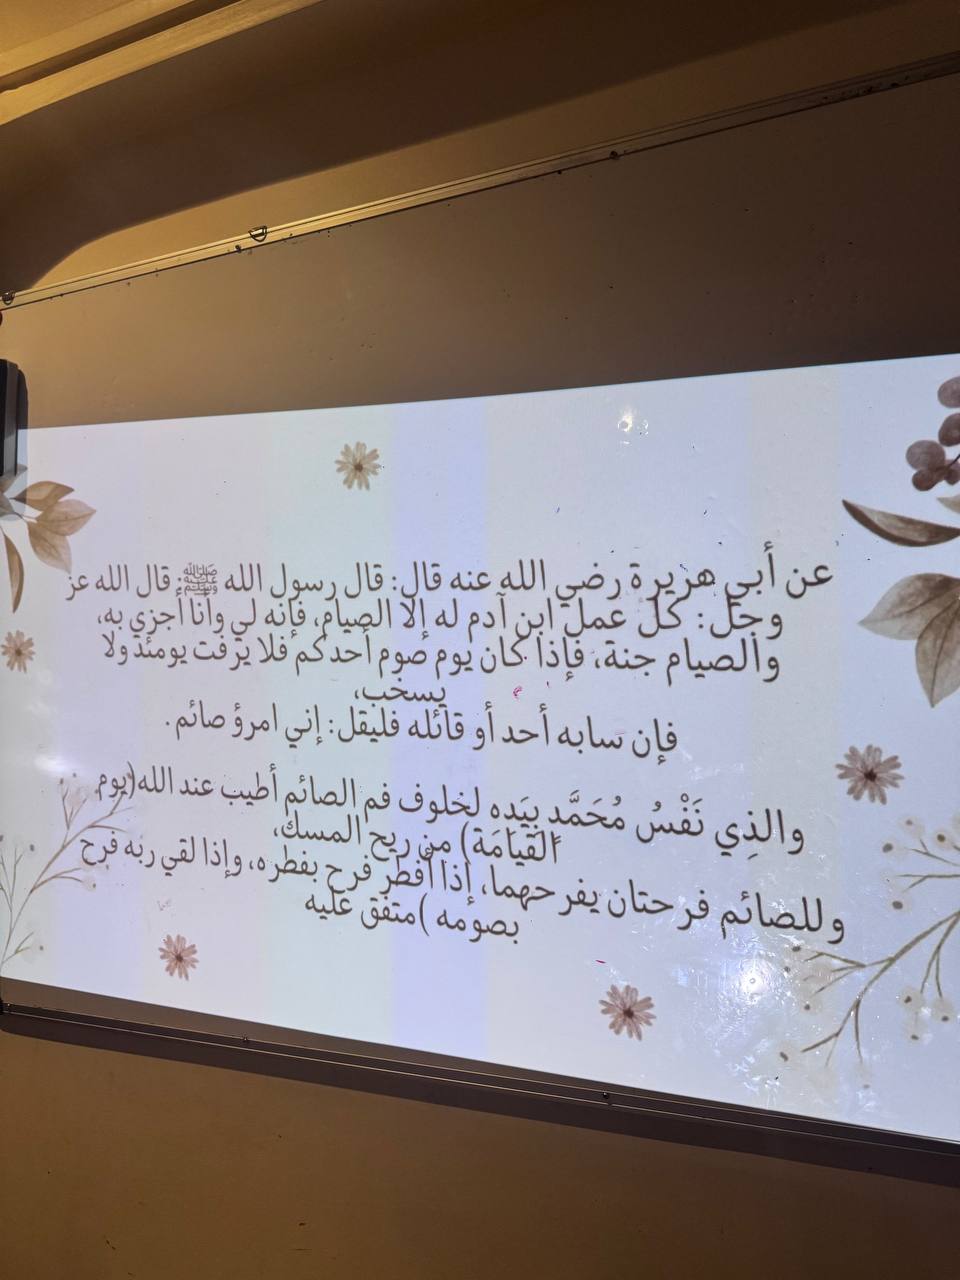 عن أبي هريرة رضي الله عنه قال: قال رسول الله ﷺ: قال الله عز
وجل: كل عمل ابن آدم له إلا الصيام، فإنه لي وأنا أجزي به،
والصيام جنة، فإذا كان يوم صوم أحدكم فلا يرفث يومئذ ولا
يسخب،
فإن سابه أحد أو قاتله فليقل: إني امرؤ صائم.
والذِي نَفْسُ مُحَمَّدٍ بِيَدِه لخلوف فم الصائم أطيب عند الله(يوم
الْقِيَامَة) من ريح المسك،
وللصائم فرحتان يفرحهما، إذا أفطر فرح بفطره، وإذا لقي ربه فرح
بصومه )متفق عليه